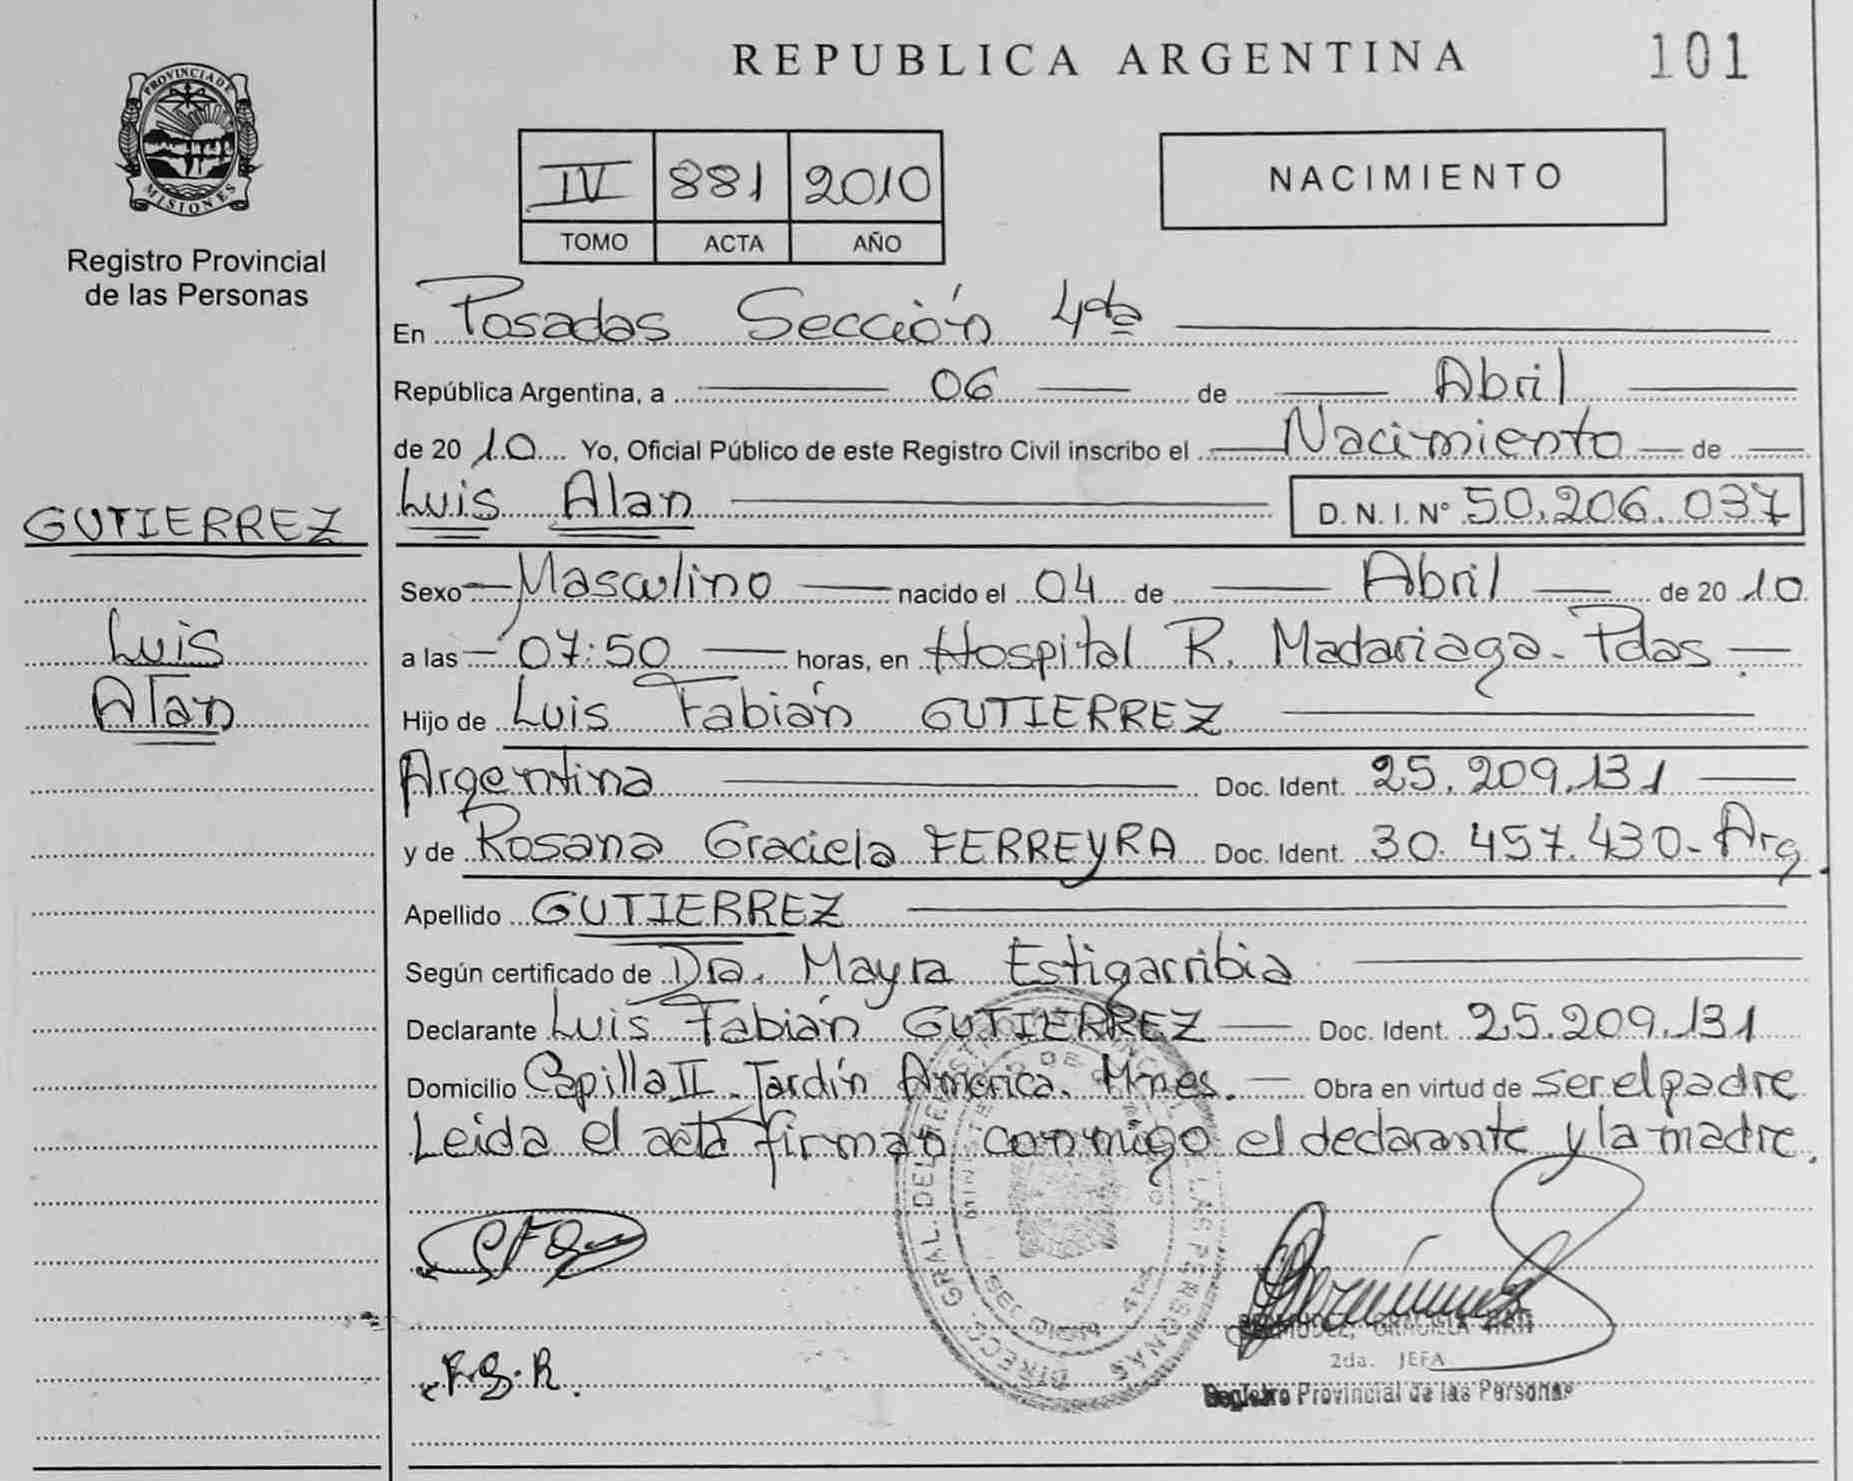 REPUBLICA ARGENTINA
101
PROVINCIA DE
MISIONES
Registro Provincial
de las Personas
IV 881 2010
TOMO ACTA AÑO
NACIMIENTO
En Posadas Sección 4ta
República Argentina, a 06 de Abril
de 20 10 Yo, Oficial Público de este Registro Civil inscribo el Nacimiento de
Luis Alan D.N.I. N° 50.206.037
GUTIERREZ
Luis
Alan
Sexo Masculino nacido el 04 de Abril de 20 10
a las 07:50 horas, en Hospital R. Madariaga - Pdas -
Hijo de Luis Fabián GUTIERREZ
Argentina Doc. Ident. 25.209.131
y de Rosana Graciela FERREYRA Doc. Ident. 30.457.430 - Arg.
Apellido GUTIERREZ
Según certificado de Dra. Mayra Estigarribia
Declarante Luis Fabián GUTIERREZ Doc. Ident. 25.209.131
Domicilio Capilla II. Jardín América. Mnes. Obra en virtud de ser el padre
Leida el acta firman conmigo el declarante y la madre.
F.G.R.
DIRECC. GRAL. DEL LAS PERSONAS
GRACIELA
2da. JEFA
Registro Provincial de las Personas